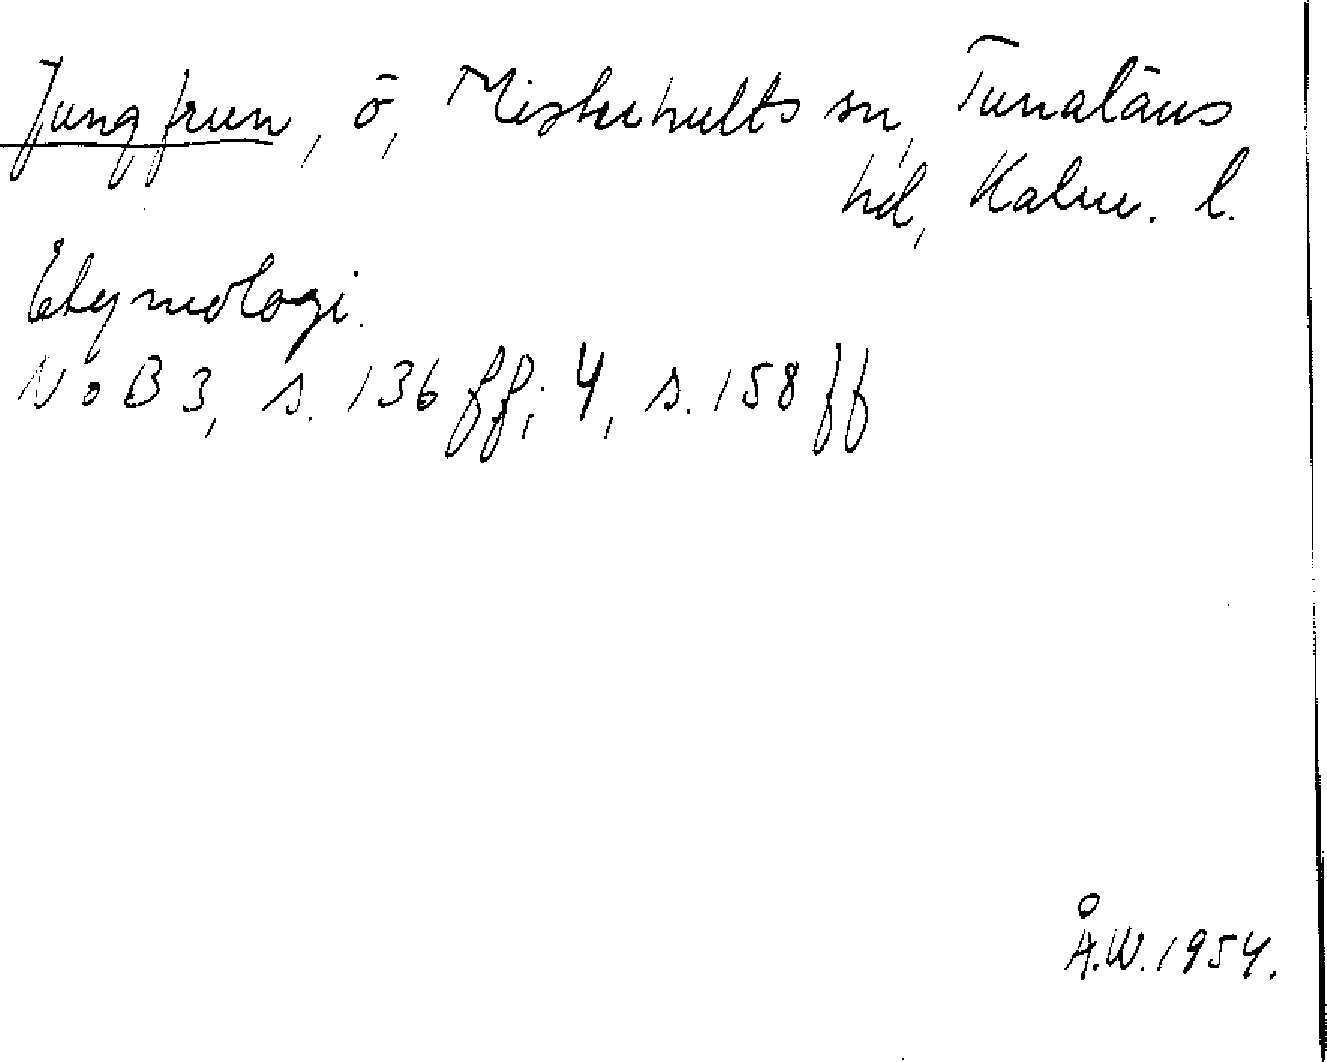 Jungfrun, ö, Misterhults sn, Tunaläns
hd, Kalm. l.
Etymologi.
NoB 3, s. 136 ff; 4, s. 158 ff
Å.W. 1954.